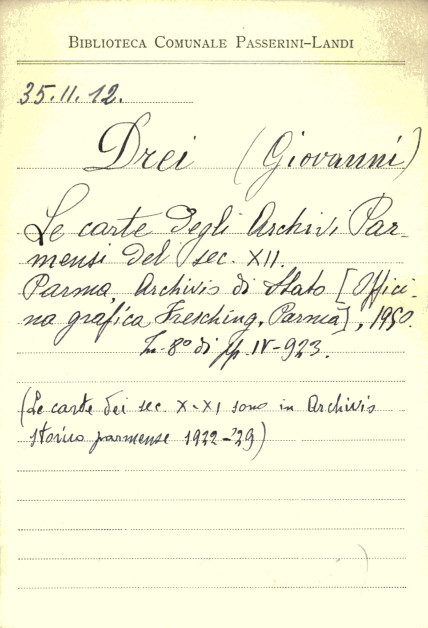 BIBLIOTECA COMUNALE PASSERINI-LANDI
35.II.12.
Drei (Giovanni)
Le carte degli Archivi Par-
mensi del sec. XII.
Parma Archivio di Stato [Offici-
na grafica Fresching, Parma], 1950.
In-8º di pp. IV-923.
(Le carte dei sec. X-XI sono in Archivio
storico parmense 1922-'29)